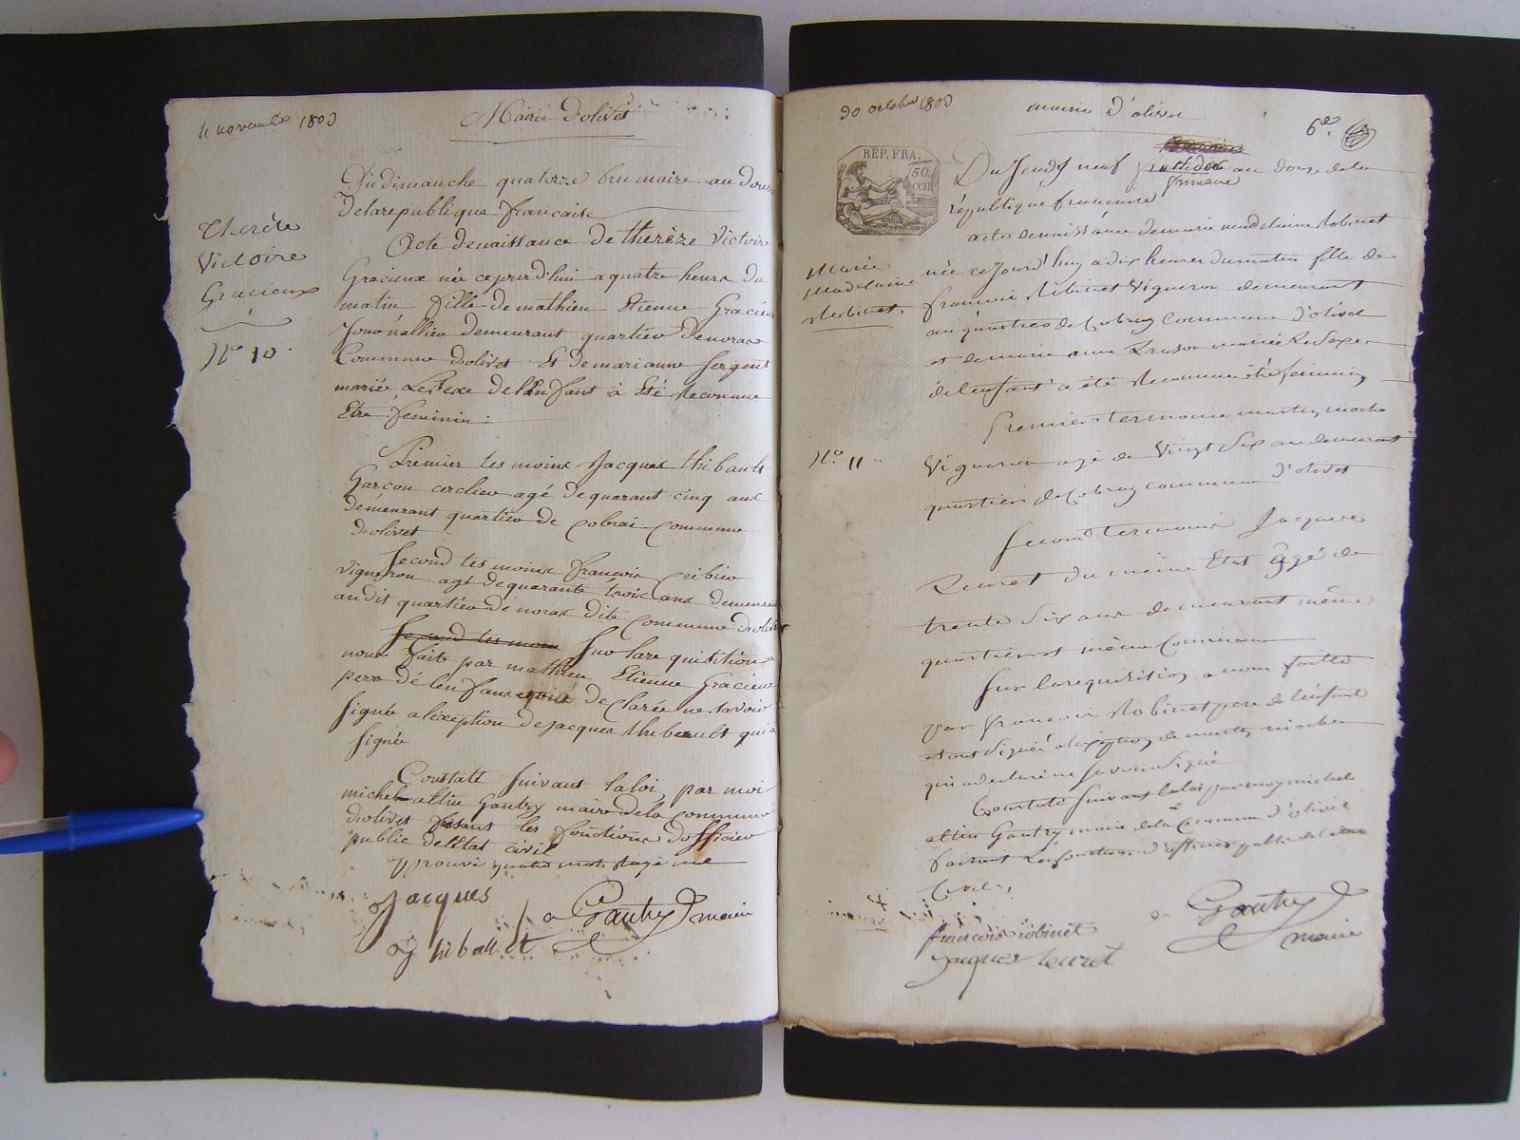 4 novembre 1803
Mairie d'olivet
Du dimanche quatorze brumaire an douze
de la republique francaise
Acte de naissance de therèze Victoire
Gracieux née ce jourd'hui a quatre heures du
matin fille de mathieu Etienne Gracieux
demeurant quartier de noras
Commune d'olivet Et de marianne sergent
marié, Le sexe de l'enfant à Eté Reconnue
Etre feminin :
Therèse
Victoire
Gracieux
No. 10.
Premier tesmoins Jacques thibault
Garcon cerclier agé de quarant cinq ans
demeurant quartier de cobrai commune
d'olivet
Second tesmoins francois
vigneron agé de quarante trois ans demeurant
audit quartier de noras dite commune d'olivet
Second tesmoin Sur lare quisition a
nous faite par mathieu Etienne Gracieux
pere de lenfant declarée ne savoir
signée a lexeption de jacques thibeault qui a
signée
Constaté suivant la loi, par moi
michel altin Gautry maire de la commune
d'olivet fesant les fonctions dofficier
public de l'Etat civil
approuvé quatre mots rayé nul
Jacques
thibault
Gautry maire
30 octobre 1803
mairie d'olivet
6e.
REP. FRA.
50.
CEN
Du Jeudy neuf
frimaire
an douze de la
république francaise
acte de naissance de marie madelaine Robinet
née ce jourd'huy a dix heures du matin fille de
francois Robinet Vigneron demeurant
au quartier de Cobray Commune d'olivet
et de marie anne mariée Le sexe
de l'enfant a été Reconnu être feminin
Marie
Madelaine
Robinet.
No. 11.
Premier tesmoin
Vigneron agé de Vingt Six ans demeurant
quartier de Cobray commune d'olivet
Second tesmoin Jacques
Leuret du même Etat agé de
trente Six ans demeurant même
quartier et même Commune
Sur la requisition a nous faitte
par francois Robinet pere de l'enfant
et ont Signée a l'exeption de
qui a declaré ne savoir Signé
Constaté Suivant la loi par moy michel
altin Gautry maire de la Commune d'olivet
faisant Les fonctions d'officier public de l'etat
Civil,
francois robinet
jacques leuret
Gautry
maire